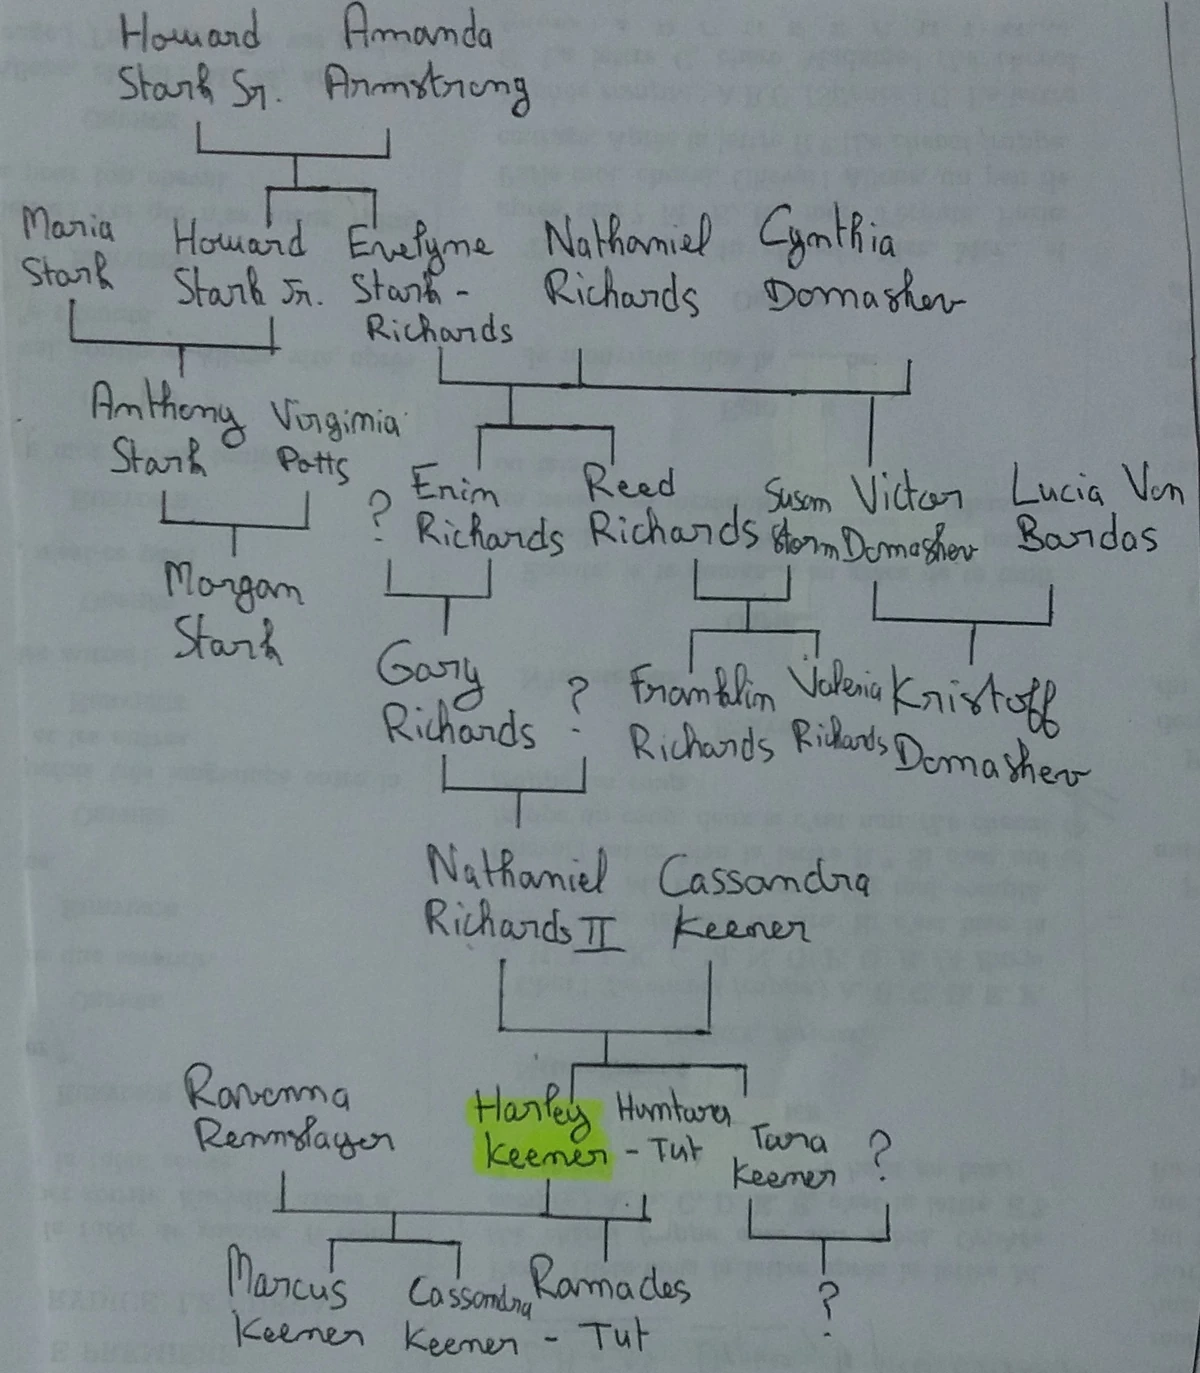 Howard Amanda
Stark Sr. Armstrong
Maria Howard Evelyne Nathaniel Cynthia
Stark Stark Jr. Stark - Richards Domashev
Richards
Anthony Virginia
Stark Potts
? Erin Reed Susan Victor Lucia Von
Richards Richards Storm Domashev Bardas
Morgan
Stark
Gary ? Franklin Valeria Kristoff
Richards Richards Richards Domashev
Nathaniel Cassandra
Richards II Keener
Ravonna Harley Huntara Tara ?
Rennslayer Keener - Tut Keener
Marcus Cassandra Ramades ?
Keener Keener - Tut